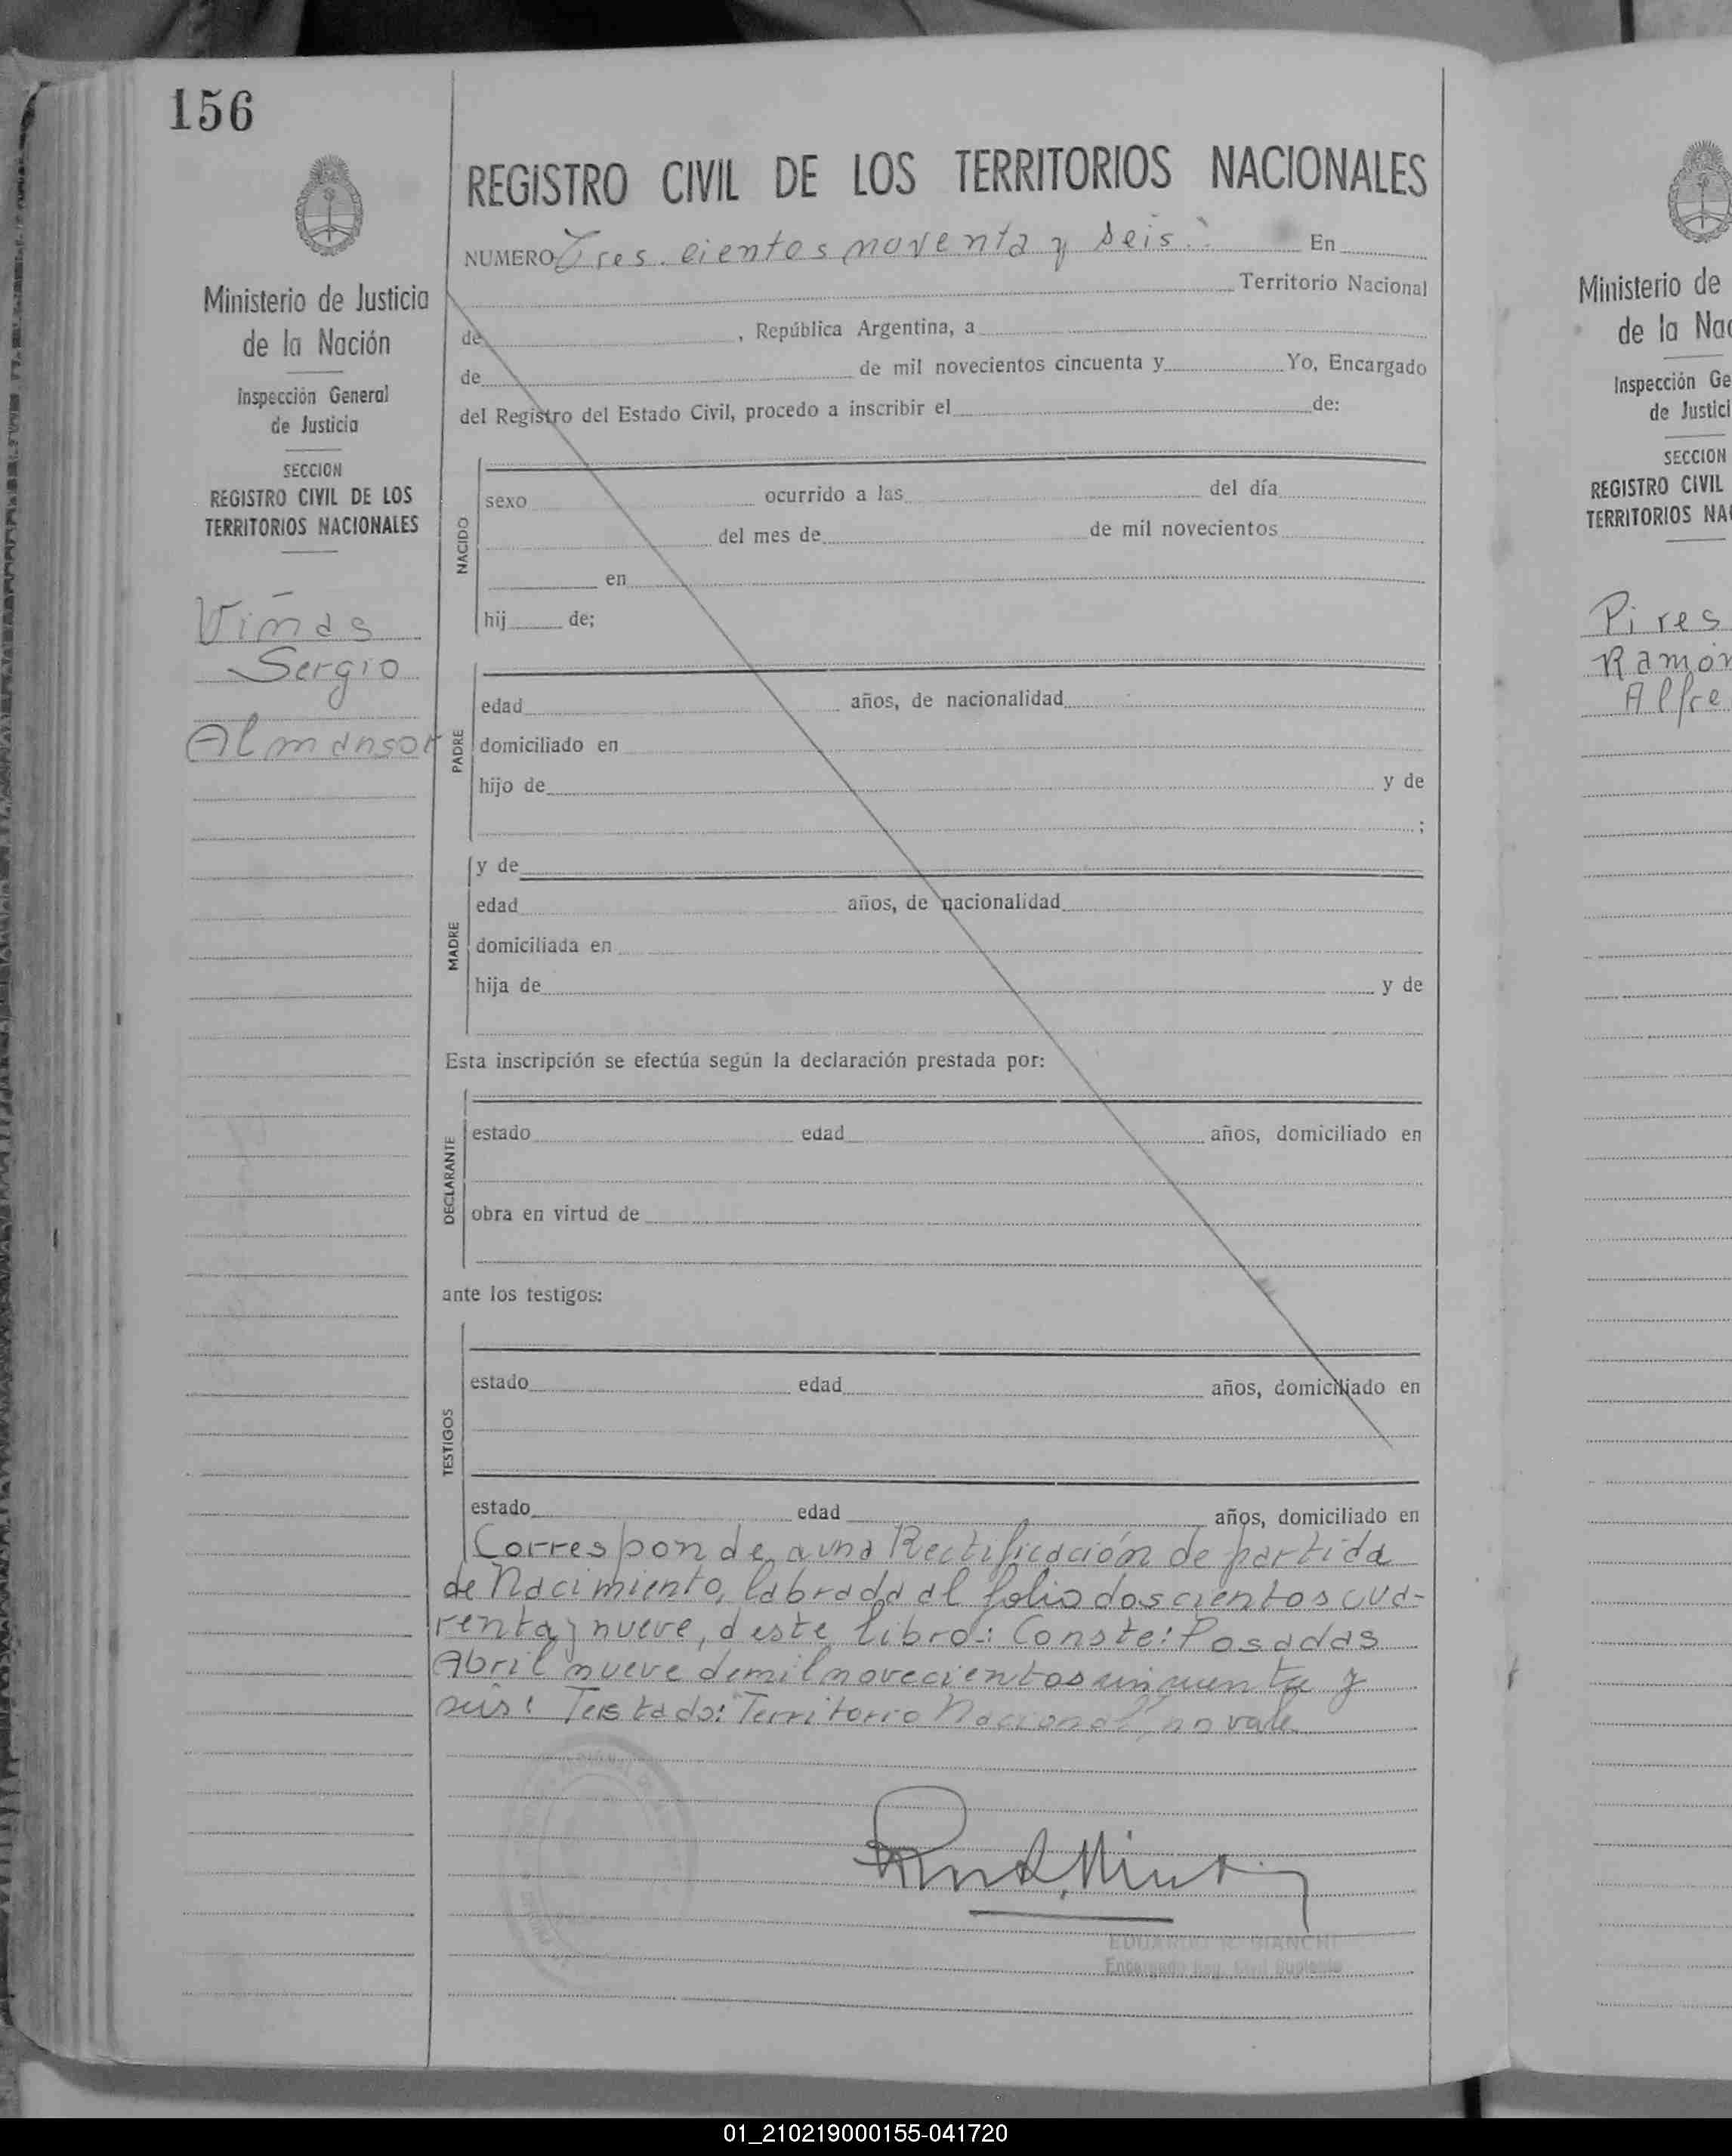 156
REGISTRO CIVIL DE LOS TERRITORIOS NACIONALES
NUMERO Tres cientos noventa y seis. En
Territorio Nacional
de , República Argentina, a
de de mil novecientos cincuenta y Yo, Encargado
del Registro del Estado Civil, procedo a inscribir el de:
Ministerio de Justicia
de la Nación
Inspección General
de Justicia
SECCION
REGISTRO CIVIL DE LOS
TERRITORIOS NACIONALES
Viñas
Sergio
Almansor
NACIDO
sexo ocurrido a las del día
del mes de de mil novecientos
en
hij de;
PADRE
edad años, de nacionalidad
domiciliado en
hijo de y de
;
MADRE
y de
edad años, de nacionalidad
domiciliada en
hija de y de
Esta inscripción se efectúa según la declaración prestada por:
DECLARANTE
estado edad años, domiciliado en
obra en virtud de
ante los testigos:
TESTIGOS
estado edad años, domiciliado en
estado edad años, domiciliado en
Corresponde, a una Rectificación de partida
de Nacimiento, labrada al folio doscientos cua-
renta y nueve, deste libro.: Conste: Posadas
Abril nueve de mil novecientos cincuenta y
seis: Testado: "Territorio Nacional", no vale
EDUARDO R. BIANCHI
Encargado Reg. Civil Suplente
Ministerio de
de la Nac
Inspección Ge
de Justici
SECCION
REGISTRO CIVIL
TERRITORIOS NA
Pires
Ramón
Alfre
01_210219000155-041720